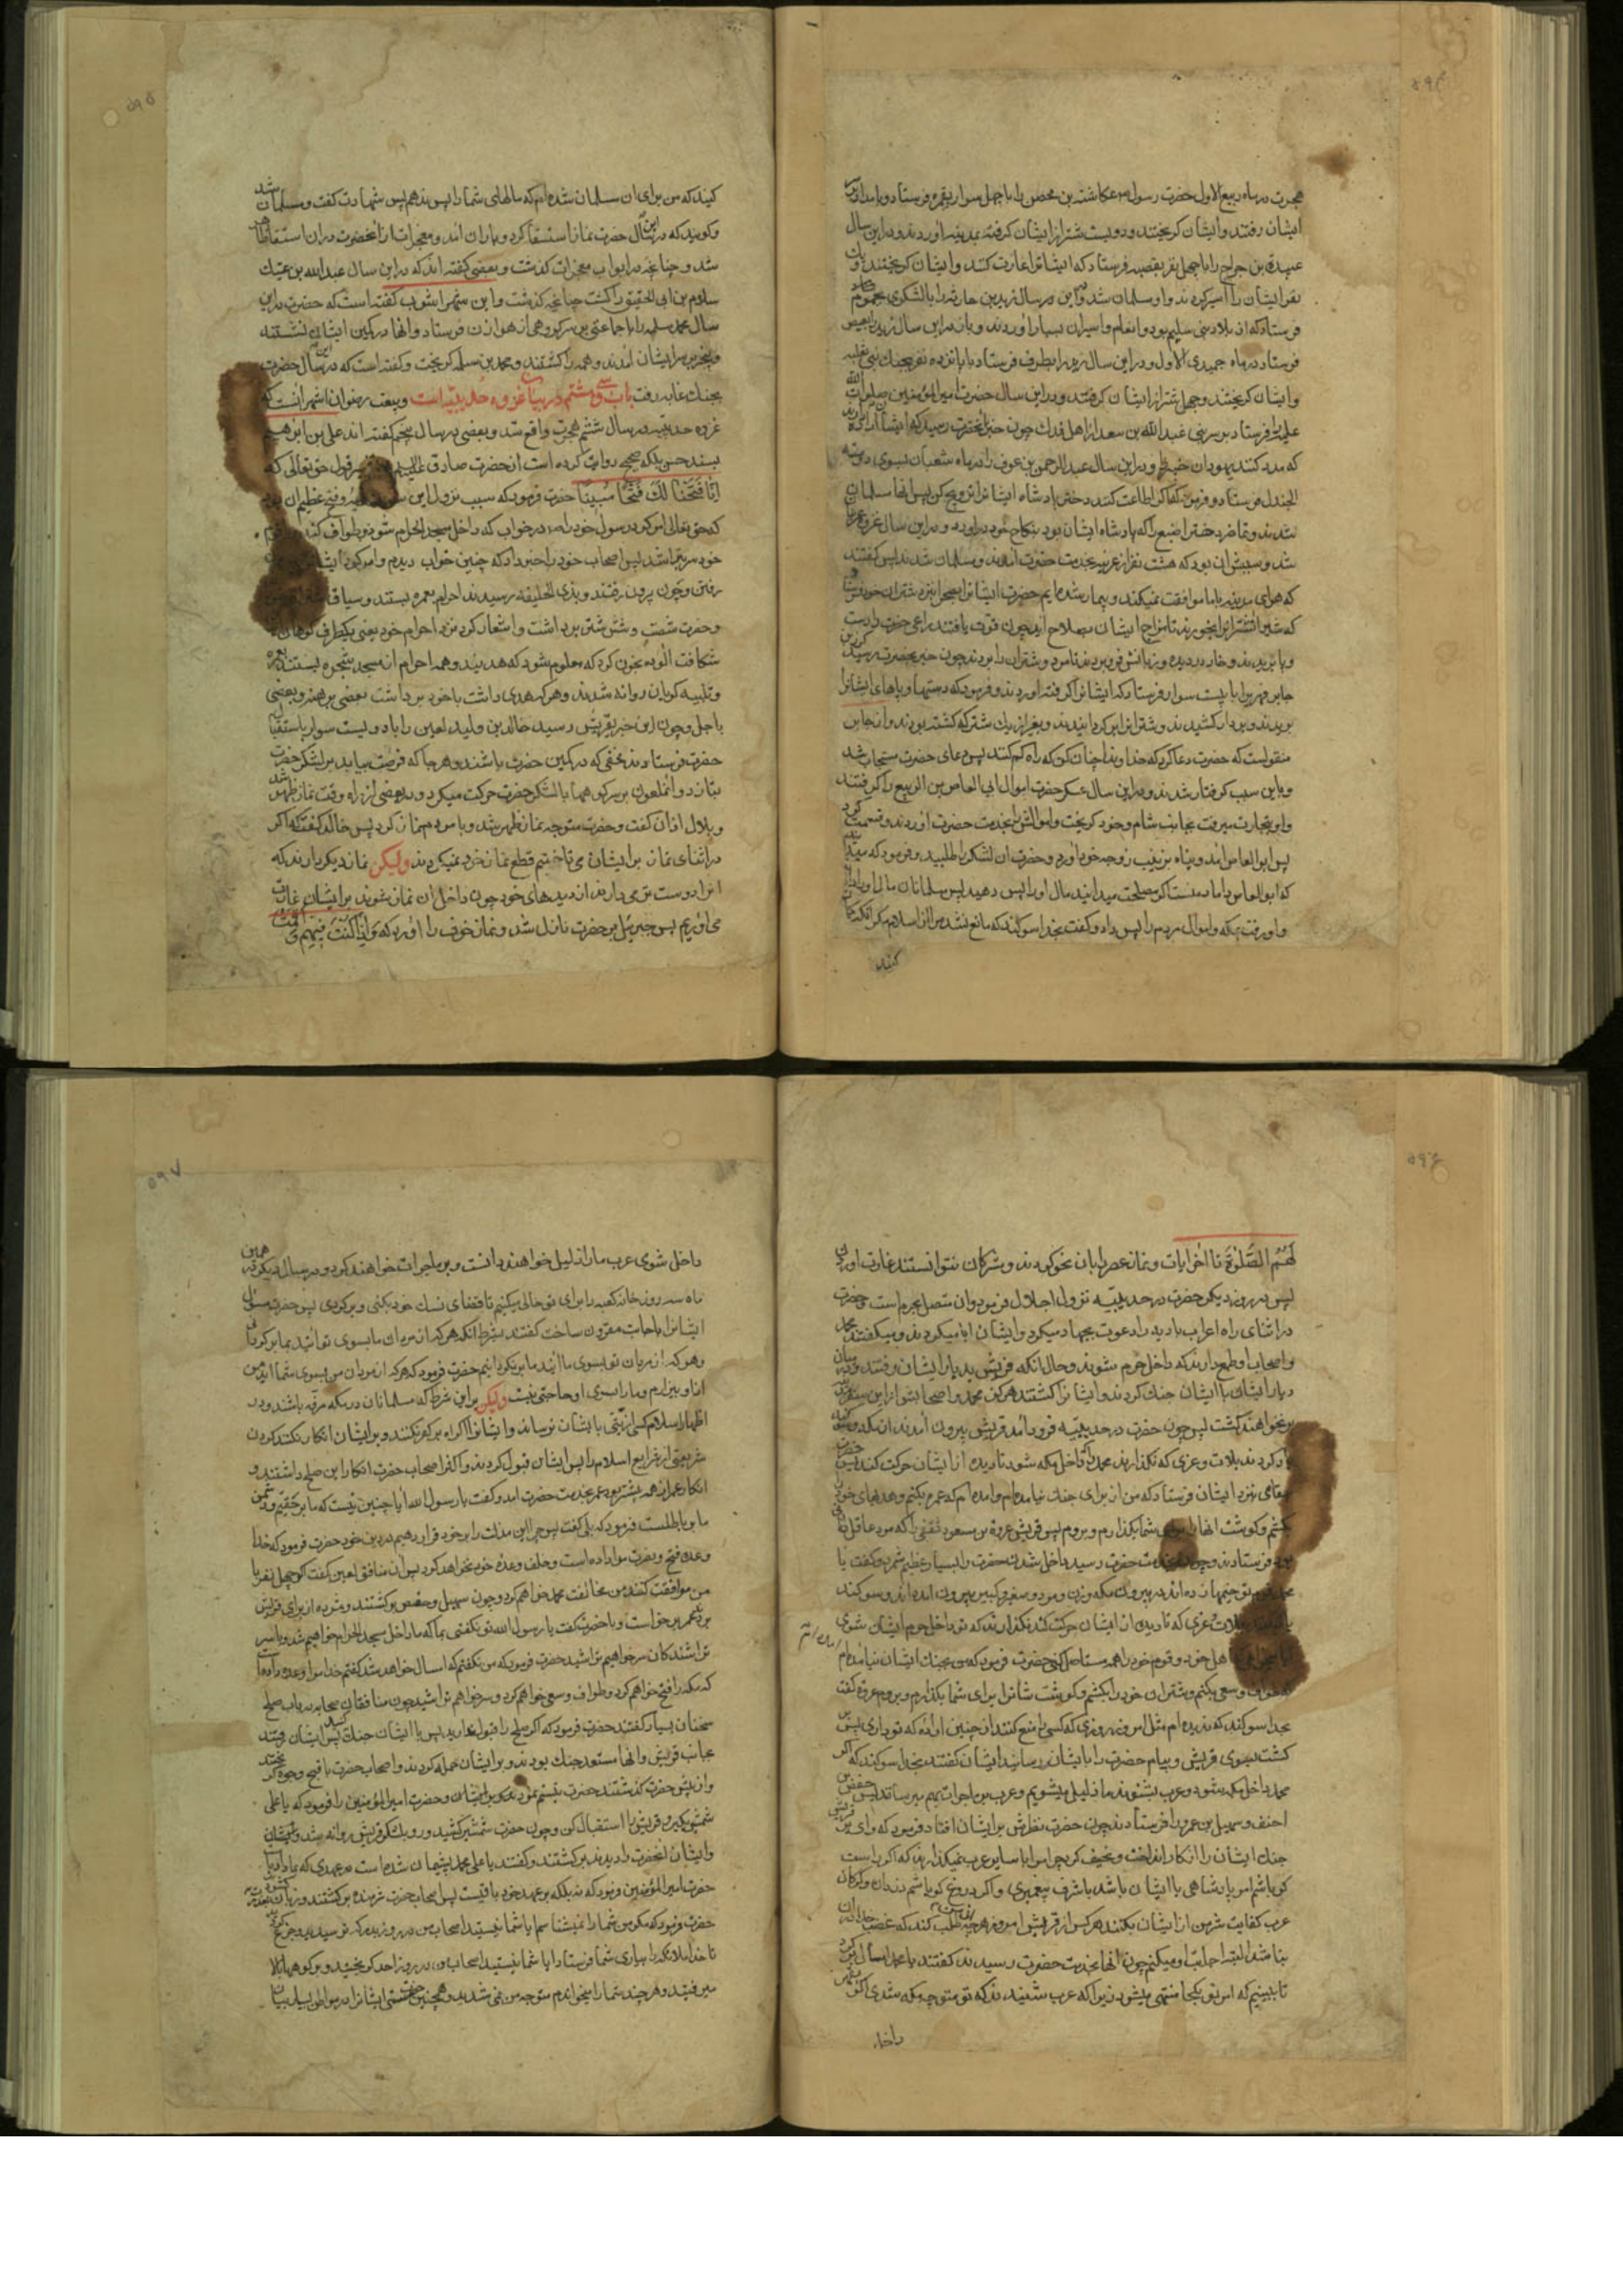 ۵۹۴
هجرت در ماه ربیع الاول حضرت رسول ص عکاشة بن محصن را با چهل سوار بغمره فرستاد و بامداد بر
ایشان رفتند و ایشان کریختند و دویست شتر از ایشان کرفته بمدینه اوردند و در این سال
عبیدة بن جراح را با چهل نفر بقصه فرستاد که ایشانرا غارت کنند و ایشان کریختند و یک
نفر ایشان را اسیر کردند و او مسلمان شد و در این سال زید بن حارثه را با لشکری بجموم
فرستاد که از بلاد بنی سلیم بود و انعام و اسیران بسیار اوردند و باز در این سال زید را بعیص
فرستاد در ماه جمیدی الاول و در این سال زید را بطرف فرستاد با پانزده نفر بجنک بنی ثعلبه
و ایشان کریختند و چهل شتر از ایشان کرفتند و در این سال حضرت امیرالمؤمنین صلوات الله
علیه را فرستاد بر سر بنی عبدالله بن سعد از اهل فدک چون خبر بحضرت رسید که ایشان اراده دارند
که مدد کنند یهودان خیبر را و در این سال عبدالرحمن بن عوف را در ماه شعبان بسوی دومة
الجندل فرستاد و فرمود که اکر اطاعت کنند دختر پادشاه ایشانرا تزویج کن پس انها مسلمان
شدند و تماضر دختر اصبغ را که پادشاه ایشان بود بنکاح خود دراورد و در این سال غزوه عرنیه
شد و سببش ان بود که هشت نفر از عرنیه بخدمت حضرت امدند و مسلمان شدند پس کفتند
که هوای مدینه با ما موافقت نمیکند و بیمار شده ایم حضرت ایشانرا بصحرا نزد شتران خود فرستاد
که شیر شترانرا بخورند تا مزاج ایشان بصلاح اید چون قوت یافتند راعی حضرت را دست
و پا بریدند و خار در دیده و زبانش فرو بردند تا مرد و شتران را بردند چون خبر بحضرت رسید کرز بن
جابر فهری را با بیست سوار فرستاد که ایشانرا کرفته اوردند و فرمود که دستها و پاهای ایشانرا
بریدند و بر دار کشیدند و شترانرا برکردانیدند و بغیر از یک شتر که کشته بودند و از جابر
منقولست که حضرت دعا کرد که خداوندا چنان کن که راه کم کنند پس دعای حضرت مستجاب شد
و باین سبب کرفتار شدند و در این سال عسکر حضرت اموال ابی العاص بن الربیع را کرفتند
و او بتجارت میرفت بجانب شام و خود کریخت و اموالش را بخدمت حضرت اوردند و قسمت کرد
پس ابو العاص امد و پناه بزینب زوجه خود اورد و حضرت ان لشکر را طلبید و فرمود که میدانید
که ابو العاص داماد منست اکر مصلحت میدانید مال او را پس دهید پس مسلمانان مال او را دادند
و او رفت بمکه و اموال مردم را پس داد و کفت بخدا سوکند که مانع نشد مرا از اسلام مکر انکه کمان
کنید
۵۹۵
کنید که من برای ان مسلمان شده ام که مالهای شما را پس ندهم پس شهادت کفت و مسلمان شد
و کویند که در این سال حضرت نماز استسقا کرد و باران امد و معجزات از انحضرت در ان استسقا ظاهر
شد و چنانچه در ابواب معجزات کذشت و بعضی کفته اند که در این سال عبدالله بن عتیک
سلام بن ابی الحقیق را کشت چنانچه کذشت و ابن شهراشوب کفته است که حضرت در این
سال محمد بن مسلمه را با جماعتی بر سر کروهی از هوازن فرستاد و انها در کمین ایشان نشستند
و بیخبر بر سر ایشان امدند و همه را کشتند و محمد بن مسلمه کریخت و کفته است که در این سال حضرت
بجنک غابه رفت باب سی و هشتم در بیان غزوه حدیبیه است و بیعت رضوان اشهر انست که
غزوه حدیبیه در سال ششم هجرت واقع شد و بعضی در سال پنجم کفته اند علی بن ابرهیم
بسند حسن بلکه صحیح روایت کرده است از حضرت صادق علیه السلم در تفسیر قول حق تعالی که
اِنّا فَتَحْنا لَکَ فَتْحاً مُبیناً حضرت فرمود که سبب نزول این سوره و فتح عظیم ان بود
که حق تعالی امر کرد رسول خود را ص در خواب که داخل مسجد الحرام شود و طواف کند
خود سر بتراشد پس اصحاب خود را خبر داد که چنین خواب دیدم و امر کرد ایشان
رفتن و چون بیرون رفتند و بذی الحلیفه رسیدند احرام بعمره بستند و سیاق
و حضرت شصت و شش شتر برداشت و اشعار کرد نزد احرام خود یعنی یکطرف کوهان
شکافت الوده بخون کرد که معلوم شود که هدیند و همه احرام از مسجد شجره بستند بعمره
و تلبیه کویان روانه شدند و هر که هدی داشت با خود برداشت بعضی برهنه و بعضی
با جل و چون این خبر بقریش رسید خالد بن ولید لعین را با دویست سوار باستقبال
حضرت فرستادند مخفی که در کمین حضرت باشند و هر جا که فرصت بیابد بر لشکر حضرت
بتازد و ان ملعون بر سر کوهها با لشکر حضرت حرکت میکرد و در بعضی از راه وقت نماز ظهر شد
و بلال اذان کفت و حضرت متوجه نماز ظهر شد و با مردم نماز کرد پس خالد کفت که اکر
در اثنای نماز بر ایشان می تاختیم قطع نماز خود نمیکردند ولیکن نماز دیکر دارند که
انرا دوست تر می دارند از دیدهای خود چون داخل ان نماز شوند بر ایشان غارت
می اوریم پس جبرئیل بر حضرت نازل شد و نماز خوف را اورد که وَاِذا کُنْتَ فیهِمْ فَاَقَمْتَ
۵۹۶
لَهُمُ الصَّلوٰةَ تا اخر ایات و نماز عصر را بان نحو کردند و مشرکان نتوانستند غارت اورند
پس در روز دیکر حضرت در حدیبیه نزول اجلال فرمود و ان متصل بحرم است و حضرت
در اثنای راه اعراب بادیه را دعوت بجهاد میکرد و ایشان ابا میکردند و میکفتند محمد
و اصحاب او طمع دارند که داخل حرم شوند و حال انکه قریش بدیار ایشان رفتند و در میان
دیار ایشان با ایشان جنک کردند و ایشانرا کشتند هرکز محمد و اصحابش از این سفر
بر نخواهند کشت پس چون حضرت در حدیبیه فرود امد قریش بیرون امدند از مکه و سوکند
یاد کردند بلات و عزی که نکذارند محمد را داخل مکه شود تا دیده از ایشان حرکت کند پس حضرت
پیغامی بنزد ایشان فرستاد که من از برای جنک نیامده ام و امده ام که عمره بکنم و هدیهای خود را
بکشم و کوشت انها را برای شما بکذارم و بروم پس قریش عروة بن مسعود ثقفی را که مرد عاقل
بود فرستادند و چون بخدمت حضرت رسید داخل شدن حضرت را بسیار عظیم شمرد و کفت یا
محمد قوم تو خیمها زده اند در بیرون مکه و زن و مرد و صغیر و کبیر بیرون امده اند و سوکند
یاد کرده اند بلات و عزی که تا دیده از ایشان حرکت کند نکذارند که تو داخل حرم ایشان شوی
ایا میخواهی که اهل خود و قوم خود را همه مستاصل کنی حضرت فرمود که من بجنک ایشان نیامده ام
که طواف و سعی بکنم و شتران خود را بکشم و کوشت شانرا برای شما بکذارم و بروم عروه کفت
بخدا سوکند که ندیده ام مثل امروز روزی که کسی را منع کنند از چنین اراده که تو داری پس بر
کشت بسوی قریش و پیام حضرت را بایشان رسانید ایشان کفتند بخدا سوکند که اکر
محمد داخل مکه بشود و عرب بشنوند ما ذلیل میشویم و عرب بر ما جرات بهم میرسانند پس حفص بن
احنف و سهیل بن عمرو را فرستادند چون حضرت نظرش بر ایشان افتاد فرمود که وای بر قریش
جنک ایشان را از کار انداخت و نحیف کرد چرا مرا با سایر عرب نمیکذارند که اکر راست
کو باشم امر پادشاهی با ایشان باشد با شرف پیغمبری و اکر دروغ کو باشم دزدان و کرکان
عرب کفایت شر من از ایشان بکنند هر کس از قریش امروز هرچه از من طلب کند که غضب خدا در ان
نباشد البته اجابت او میکنم چون انها بخدمت حضرت رسیدند کفتند یا محمد امسال برکرد
تا ببینیم که امر تو بکجا منتهی میشود زیرا که عرب شنیدند که تو متوجه مکه شدی اکر
داخل
۵۹۷
داخل شوی عرب ما را ذلیل خواهند دانست و بر ما جرات خواهند کرد و در سال دیکر در همین
ماه سه روز خانه کعبه را برای تو خالی میکنیم تا قضای نسک خود بکنی و برکردی پس حضرت مسئول
ایشانرا باجابت مقرون ساخت کفتند بشرط انکه هر که از مردان ما بسوی تو ایند بما برکردانی
و هر که از مردان تو بسوی ما ایند ما برنکردانیم حضرت فرمود که هر که از مردان من بسوی شما اید من
از او بیزارم و ما را بسوی او حاجتی نیست ولیکن براین شرط که مسلمانان در مکه مرفه باشند و در
اظهار اسلام کسی اذیتی بایشان نرساند و ایشانرا اکراه بر کفر نکنند و بر ایشان انکار نکنند کردن
شریعتی از شرایع اسلام را پس ایشان قبول کردند و اکثر اصحاب حضرت انکار این صلح داشتند و
انکار عمر از همه بیشتر بود عمر بخدمت حضرت امد و کفت یا رسول الله ایا چنین نیست که ما بر حقیم و دشمن
ما بر باطلست فرمود که بلی کفت پس چرا این مذلت را بر خود قرار دهیم در دین خود حضرت فرمود که خدا
وعده فتح و نصرت مرا داده است و خلف وعده خود نخواهد کرد پس ان منافق لعین کفت اکر چهل نفر با
من موافقت کنند من مخالفت محمد خواهم کرد و چون سهیل و حفص برکشتند
عمر برخواست و با حضرت کفت یا رسول الله تو نکفتی بما که ما داخل مسجد الحرام خواهیم شد و با سر
تراشندکان سر خواهیم تراشید حضرت فرمود که من نکفتم که امسال خواهد شد کفتم خدا مرا وعده داده است
که مکه را فتح خواهم کرد و طواف و سعی خواهم کرد و سر خواهم تراشید چون منافقان صحابه در باب صلح
سخنان بسیار کفتند حضرت فرمود که اکر صلح را قبول ندارید پس با ایشان جنک کنید پس ایشان رفتند
بجانب قریش و انها مستعد جنک بودند و بر ایشان حمله کردند و اصحاب حضرت با قبح وجوه کریختند
و از پیش حضرت کذشتند حضرت تبسم نمود و حضرت امیرالمؤمنین را فرمود که یا علی
شمشیر بکیر و قریش را استقبال کن و چون حضرت شمشیر کشید و رو بلشکر قریش روانه شد
و ایشان انحضرت را دیدند برکشتند و کفتند یا علی محمد پشیمان شده است در عهدی که بما داد
حضرت امیرالمؤمنین فرمود که نه بلکه بر عهد خود باقیست پس اصحاب حضرت شرمنده برکشتند و زبان بعذر کشودند
حضرت فرمود که مکر من شما را نمیشناسم ایا شما نیستید اصحاب من در روز بدر که ترسیدید و جزع کردید
تا خدا ملائکه را بیاری شما فرستاد ایا شما نیستید اصحاب من در روز احد کریختید و بر کوهها بالا
میرفتید و هر چند شما را میخواندم متوجه من نمی شدید و همچنین حضرت ایشانرا در مواطن بسیار بیان